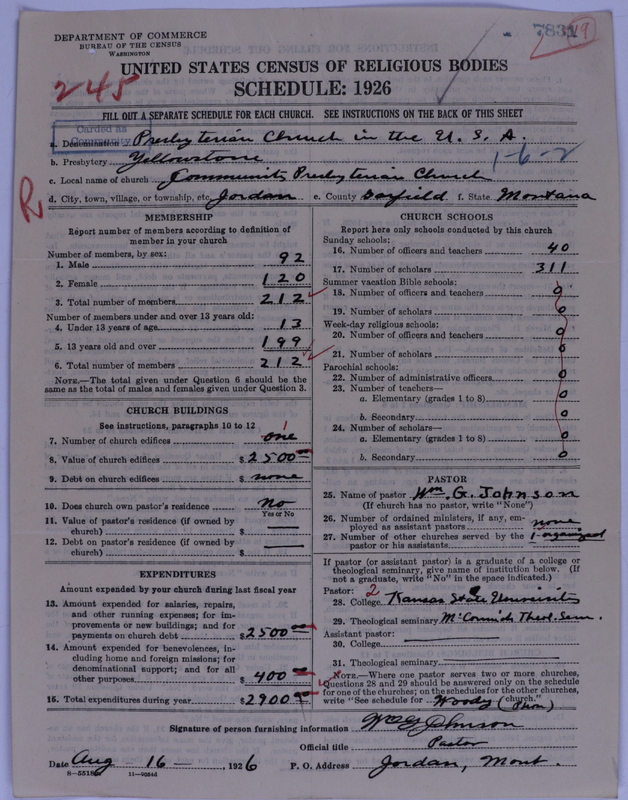 DEPARTMENT OF COMMERCE
BUREAU OF THE CENSUS
WASHINGTON
7831
19
UNITED STATES CENSUS OF RELIGIOUS BODIES
245
SCHEDULE: 1926
FILL OUT A SEPARATE SCHEDULE FOR EACH CHURCH. SEE INSTRUCTIONS ON THE BACK OF THIS SHEET
Carded as
Community
a. Denomination Presbyterian Church in the U. S. A.
b. Presbytery Yellowstone 1-6-2
c. Local name of church Community Presbyterian Church
R
d. City, town, village, or township, etc. Jordan e. County Garfield f. State Montana
MEMBERSHIP
Report number of members according to definition of
member in your church
Number of members, by sex:
1. Male 92
2. Female 120
3. Total number of members 212
Number of members under and over 13 years old:
4. Under 13 years of age 13
5. 13 years old and over 199
6. Total number of members 212
NOTE.—The total given under Question 6 should be the
same as the total of males and females given under Question 3.
CHURCH BUILDINGS
See instructions, paragraphs 10 to 12
7. Number of church edifices one 1
8. Value of church edifices $ 2500.00
9. Debt on church edifices $ none
10. Does church own pastor's residence no
Yes or No
11. Value of pastor's residence (if owned by
church) $
12. Debt on pastor's residence (if owned by
church) $
EXPENDITURES
Amount expended by your church during last fiscal year
13. Amount expended for salaries, repairs,
and other running expenses; for im-
provements or new buildings; and for
payments on church debt $ 2500.00
14. Amount expended for benevolences, in-
cluding home and foreign missions; for
denominational support; and for all
other purposes $ 400.00
15. Total expenditures during year $ 2900.00
CHURCH SCHOOLS
Report here only schools conducted by this church
Sunday schools:
16. Number of officers and teachers 40
17. Number of scholars 311
Summer vacation Bible schools:
18. Number of officers and teachers 0
19. Number of scholars 0
Week-day religious schools:
20. Number of officers and teachers 0
21. Number of scholars 0
Parochial schools:
22. Number of administrative officers 0
23. Number of teachers—
a. Elementary (grades 1 to 8) 0
b. Secondary 0
24. Number of scholars—
a. Elementary (grades 1 to 8) 0
b. Secondary 0
PASTOR
25. Name of pastor Wm. G. Johnson
(If church has no pastor, write "None")
26. Number of ordained ministers, if any, em-
ployed as assistant pastors none
27. Number of other churches served by the 1-organized
pastor or his assistants
If pastor (or assistant pastor) is a graduate of a college or
theological seminary, give name of institution below. (If
not a graduate, write "No" in the space indicated.)
Pastor: 2
28. College Kansas State University
29. Theological seminary McCormick Theol. Sem.
Assistant pastor:
30. College
31. Theological seminary
NOTE.—Where one pastor serves two or more churches,
Questions 28 and 29 should be answered only on the schedule
for one of the churches; on the schedules for the other churches,
write "See schedule for Woody church."
Signature of person furnishing information Wm G Johnson
Official title Pastor
Date Aug 16, 1926 P. O. Address Jordan, Mont.